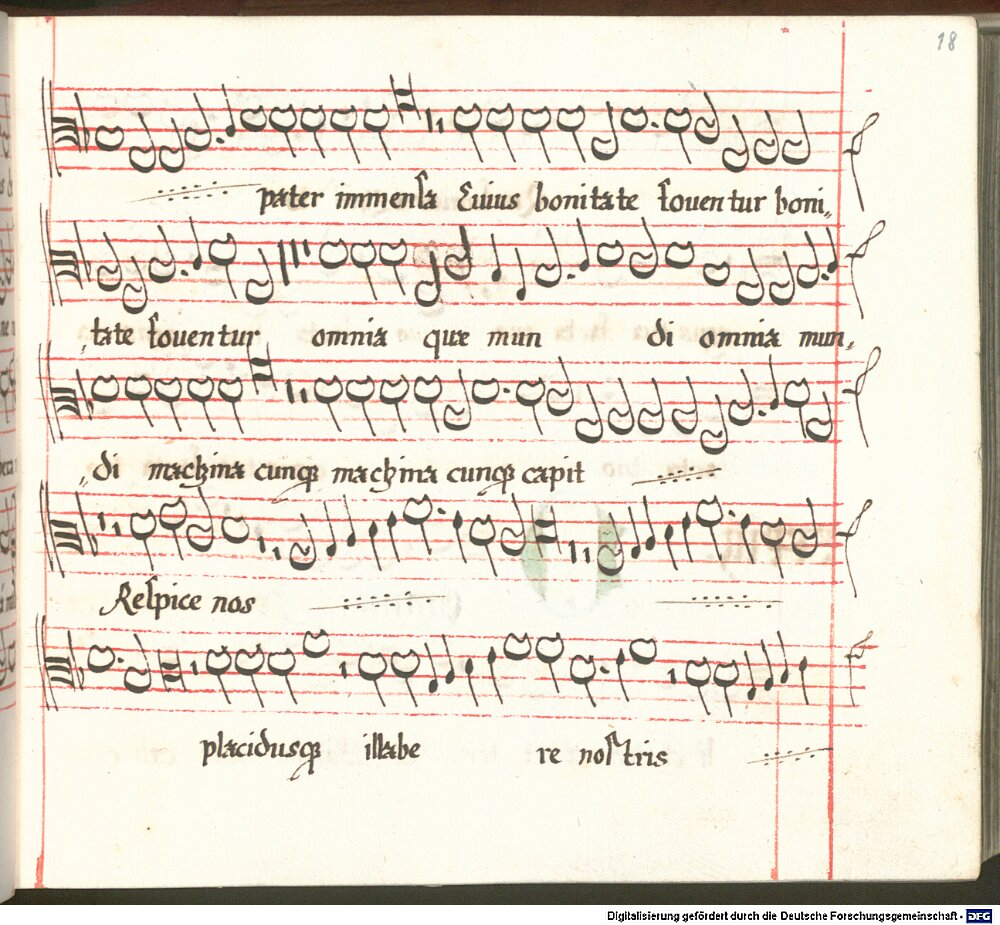 18
pater immensa Cuius bonitate foventur boni„
„tate foventur omnia quæ mun di omnia mun„
„di machina cunq machina cunq capit
Respice nos
placidusq illabe re nostris
Digitalisierung gefördert durch die Deutsche Forschungsgemeinschaft - DFG